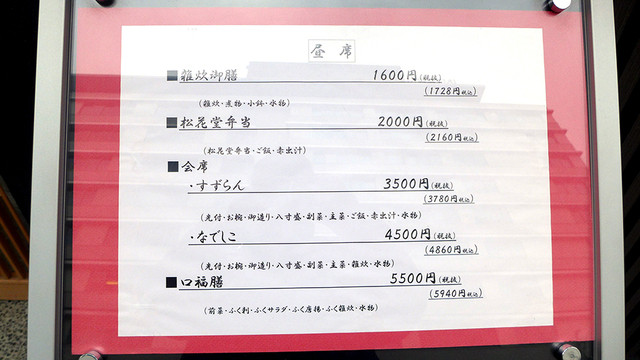 昼席
■雑炊御膳 1600円(税抜)
(1728円税込)
(雑炊・煮物・小鉢・水物)
■松花堂弁当 2000円(税抜)
(2160円税込)
(松花堂弁当・ご飯・赤出汁)
■会席
・すずらん 3500円(税抜)
(3780円税込)
(先付・お椀・御造り・八寸盛・副菜・主菜・ご飯・赤出汁・水物)
・なでしこ 4500円(税抜)
(4860円税込)
(先付・お椀・御造り・八寸盛・副菜・主菜・雑炊・水物)
■口福膳 5500円(税抜)
(5940円税込)
(前菜・ふく刺・ふくサラダ・ふく唐揚・ふく雑炊・水物)